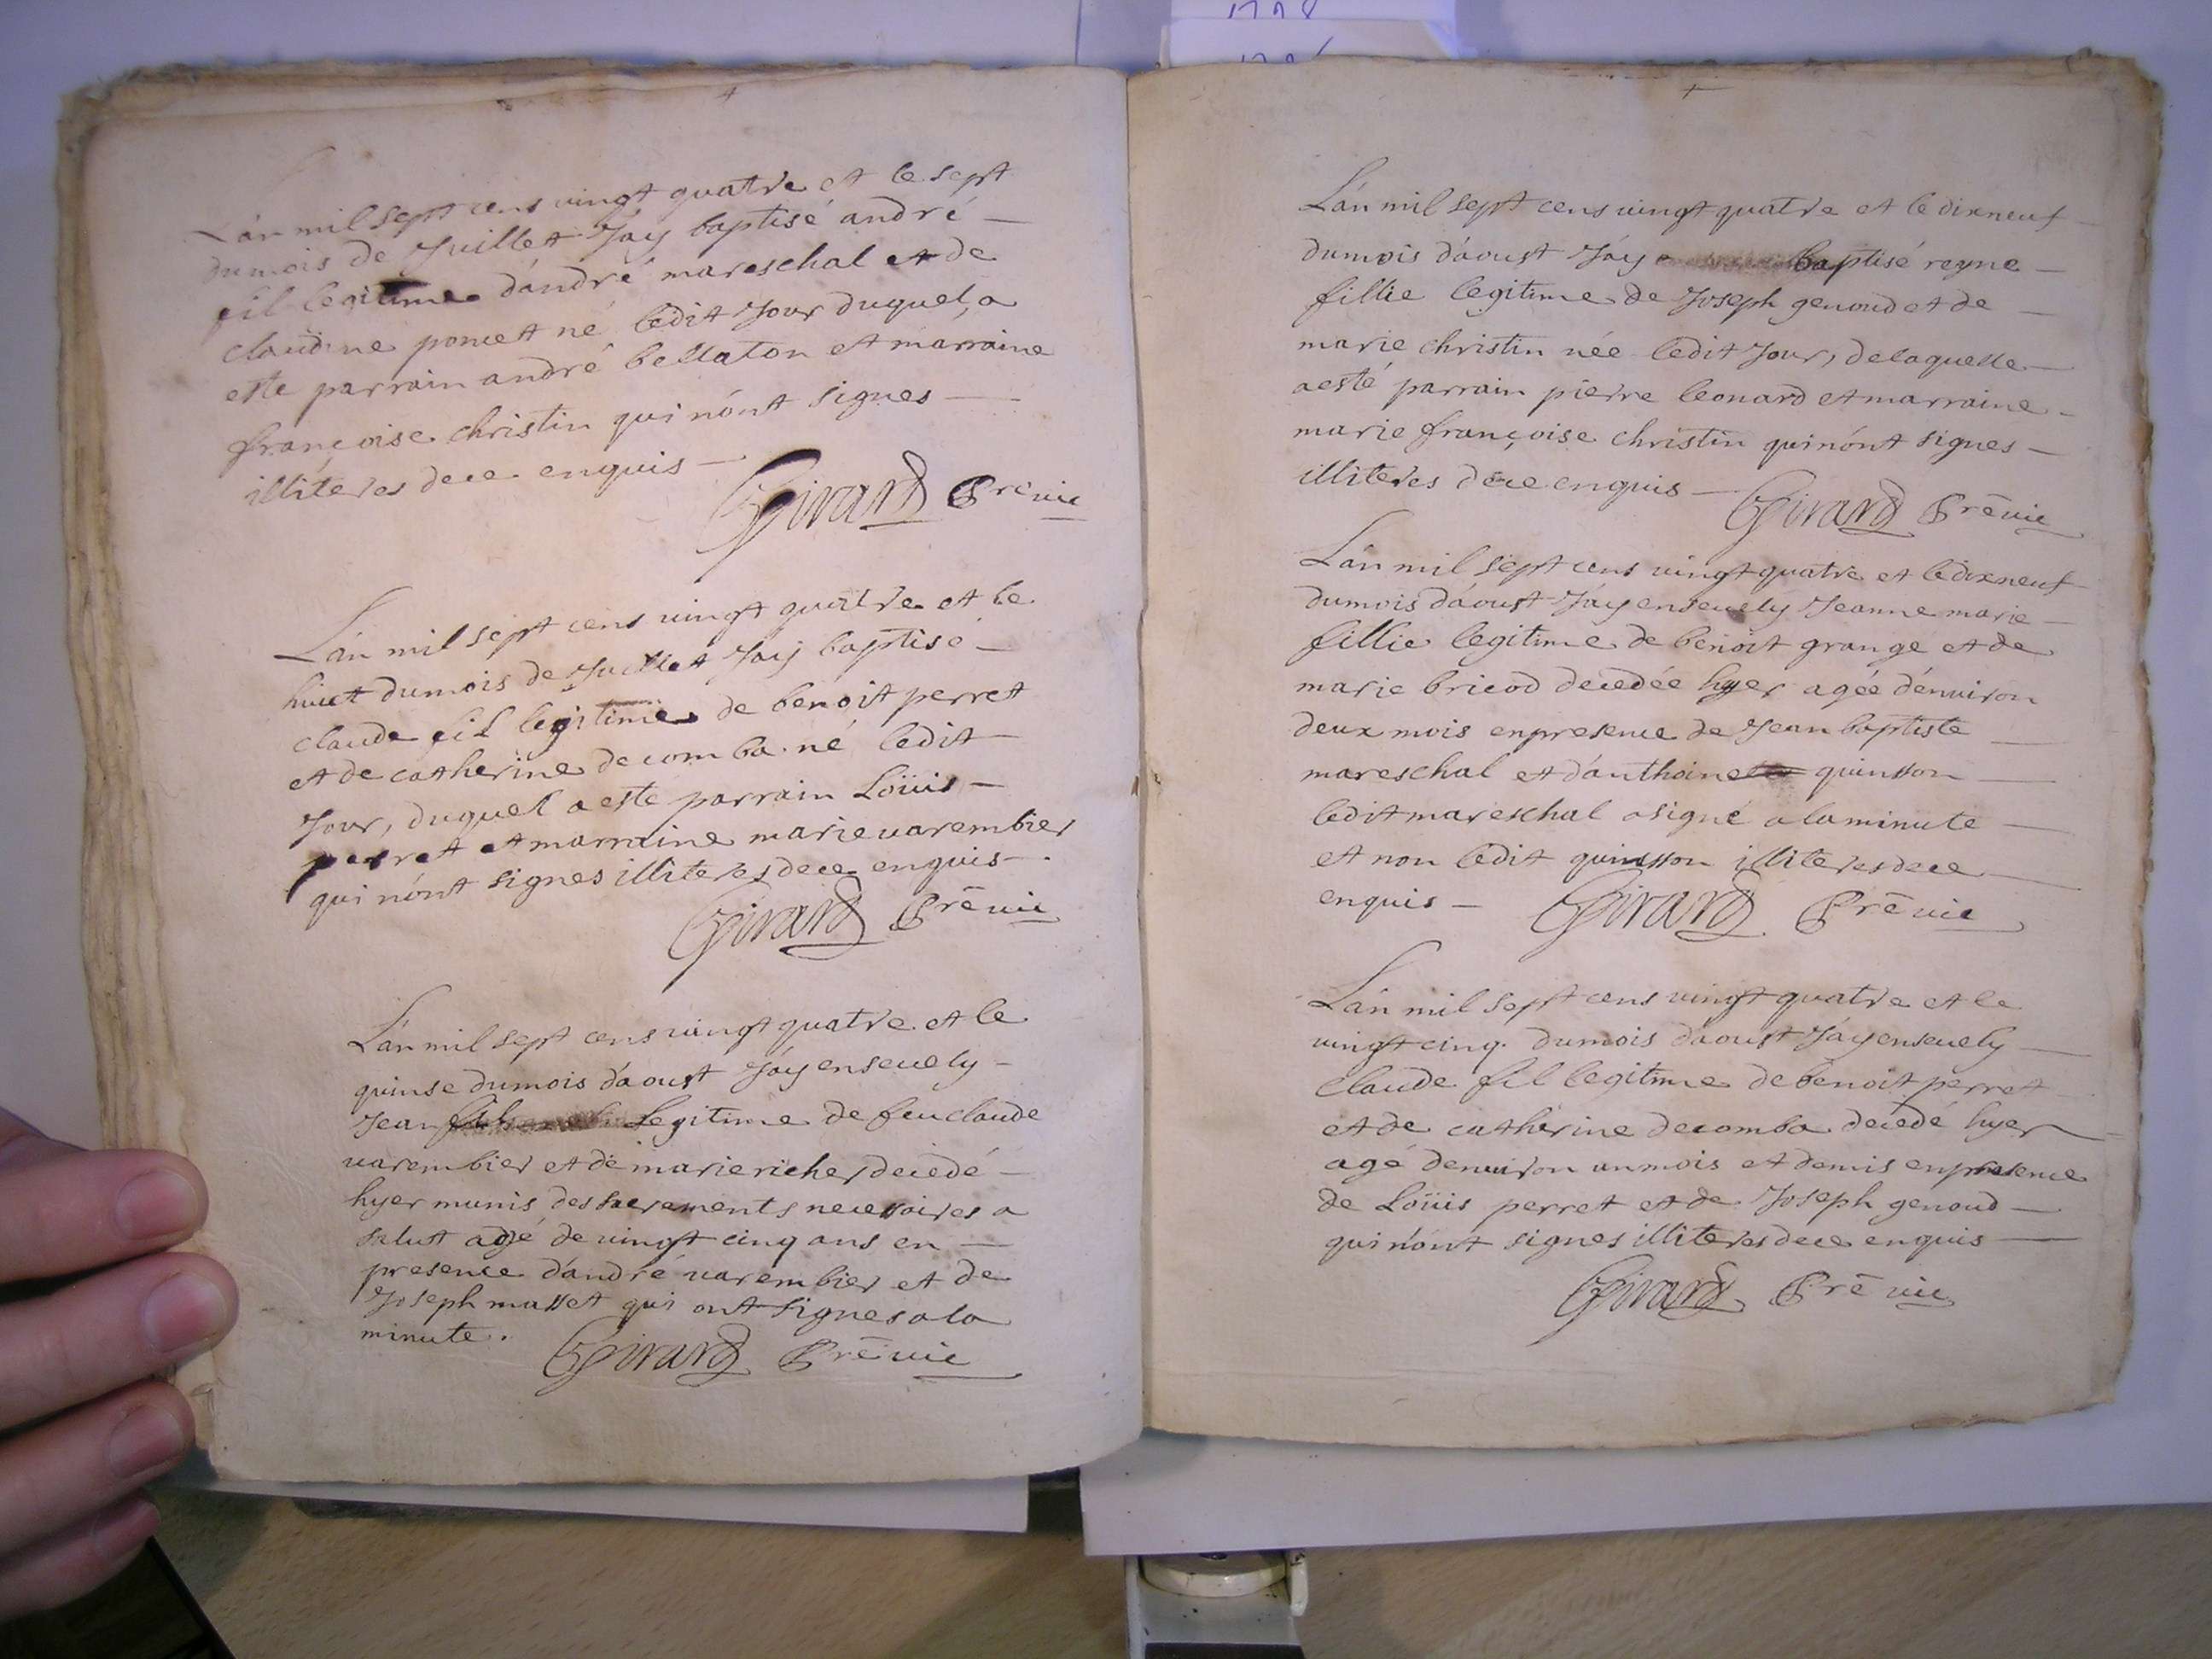 L'an mil sept cens vingt quatre et le sept
du mois de Juillet J'ay baptisé andré
fil legitime d'andré mareschal et de
claudine poncet né ledit Jour duquel, a
esté parrain andré bellaton et marraine
françoise christin qui n'ont signes
illiteres de ce enquis
Girard Prē vic
L'an mil sept cens vingt quatre et le
huict du mois de Juillet J'ay baptisé
claude fil legitime de benoit perret
et de catherine decomba né ledit
Jour, duquel a esté parrain Loüis
perret et marraine marie varembier
qui n'ont signes illiteres de ce enquis
Girard Prē vic
L'an mil sept cens vingt quatre et le
quinse du mois d'aoust J'ay ensevely
Jean fil legitime de feu claude
varembier et de marie richer decedé
hyer munis des sacrements necessoires a
salut agé de vingt cinq ans en
presence d'andré varembier et de
Joseph masset qui ont signes a la
minute.
Girard Prē vic
L'an mil sept cens vingt quatre et le dixneuf
du mois d'aoust J'ay baptisé reyne
fillie legitime de Joseph genoud et de
marie christin née ledit Jour, de laquelle
a esté parrain pierre leonard et marraine
marie françoise christin qui n'ont signes
illiteres de ce enquis
Girard Prē vic
L'an mil sept cens vingt quatre et le dixneuf
du mois d'aoust J'ay ensevely Jeanne marie
fillie legitime de benoit grange et de
marie bricod decedée hyer agée d'environ
deux mois en presence de Jean baptiste
mareschal et d'anthoine quinsson
ledit mareschal a signé a la minute
et non ledit quinsson illiteres de ce
enquis
Girard Prē vic
L'an mil sept cens vingt quatre et le
vingt cinq du mois d'aoust J'ay ensevely
Claude fil legitime de benoit perret
et de catherine decomba decedé hyer
agé d'environ un mois et demis en presence
de Loüis perret et de Joseph genoud
qui n'ont signes illiteres de ce enquis
Girard Prē vic